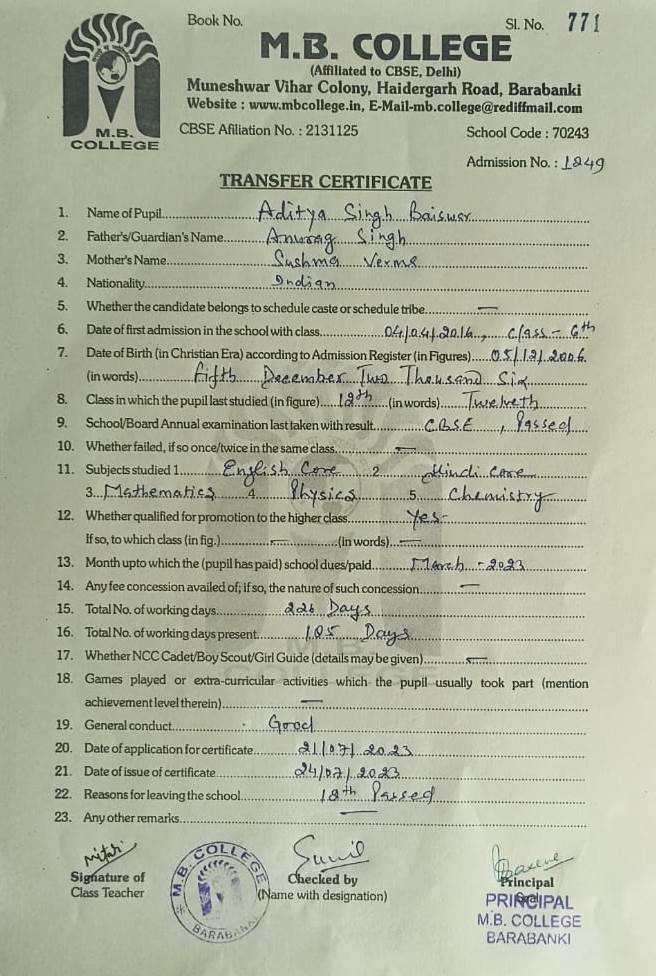 Book No.
Sl. No. 771
M.B. COLLEGE
(Affiliated to CBSE, Delhi)
Muneshwar Vihar Colony, Haidergarh Road, Barabanki
Website : www.mbcollege.in, E-Mail-mb.college@rediffmail.com
M.B.
COLLEGE
CBSE Afiliation No. : 2131125
School Code : 70243
Admission No. : 1249
TRANSFER CERTIFICATE
1. Name of Pupil Aditya Singh Baiswar
2. Father's/Guardian's Name Anurag Singh
3. Mother's Name Sushma Verma
4. Nationality Indian
5. Whether the candidate belongs to schedule caste or schedule tribe —
6. Date of first admission in the school with class 04/04/2016, Class - 6th
7. Date of Birth (in Christian Era) according to Admission Register (in Figures) 05/12/2006
(in words) Fifth December Two Thousand Six
8. Class in which the pupil last studied (in figure) 12th (in words) Twelveth
9. School/Board Annual examination last taken with result CBSE, Passed
10. Whether failed, if so once/twice in the same class —
11. Subjects studied 1. English Core 2. Hindi Core
3. Mathematics 4. Physics 5. Chemistry
12. Whether qualified for promotion to the higher class Yes-
If so, to which class (in fig.) — (in words) —
13. Month upto which the (pupil has paid) school dues/paid March - 2023
14. Any fee concession availed of; if so, the nature of such concession —
15. Total No. of working days 226 Days
16. Total No. of working days present 185 Days
17. Whether NCC Cadet/Boy Scout/Girl Guide (details may be given) —
18. Games played or extra-curricular activities which the pupil usually took part (mention
achievement level therein) —
19. General conduct Good
20. Date of application for certificate 21/07/2023
21. Date of issue of certificate 24/07/2023
22. Reasons for leaving the school 12th Passed
23. Any other remarks —
Sunil
Signature of
Class Teacher
M.B. COLLEGE
BARABANKI
Checked by
(Name with designation)
Principal
PRINCIPAL
M.B. COLLEGE
BARABANKI